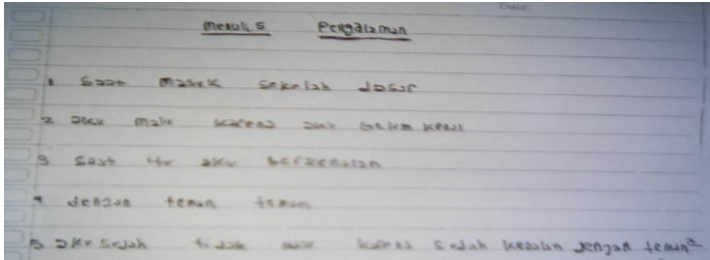 Date:
Menulis Pengalaman
1 Saat masuk sekolah dasar
2 aku malu karena aku belum kenal
3 Saat itu aku berkenalan
4 dengan teman teman
5 aku sudah tidak malu karena sudah kenalan dengan teman²